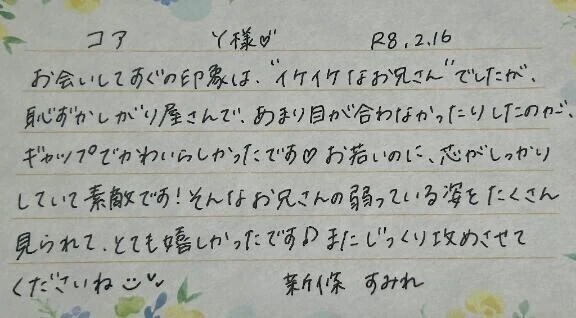 コア Y様♡ R8.2.16
お会いしてすぐの印象は、"イケイケなお兄さん"でしたが、
恥ずかしがり屋さんで、あまり目が合わなかったりしたのが、
ギャップでかわいらしかったです♡ お若いのに、芯がしっかり
していて素敵です！そんなお兄さんの弱っている姿をたくさん
見られて、とても嬉しかったです♪またじっくり攻めさせて
くださいね 新條 すみれ